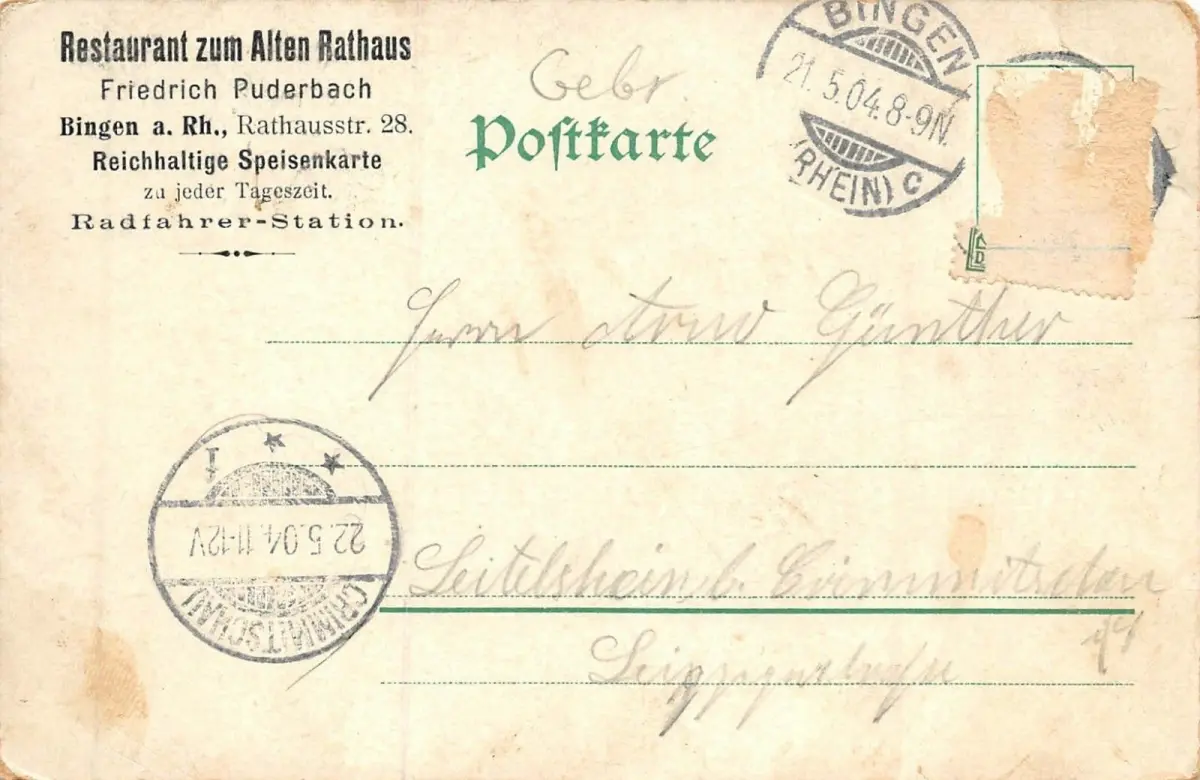 Restaurant zum Alten Rathaus
Friedrich Puderbach
Bingen a. Rh., Rathausstr. 28.
Reichhaltige Speisenkarte
zu jeder Tageszeit.
Radfahrer-Station.
Gebr.
Poſtkarte
BINGEN
21.5.04.8-9N.
(RHEIN) C
Herrn Arno Günther
22.5.04.11-12V
CRIMMITSCHAU
I
Leitelshein b. Crimmitschau
Leipzigerstraße